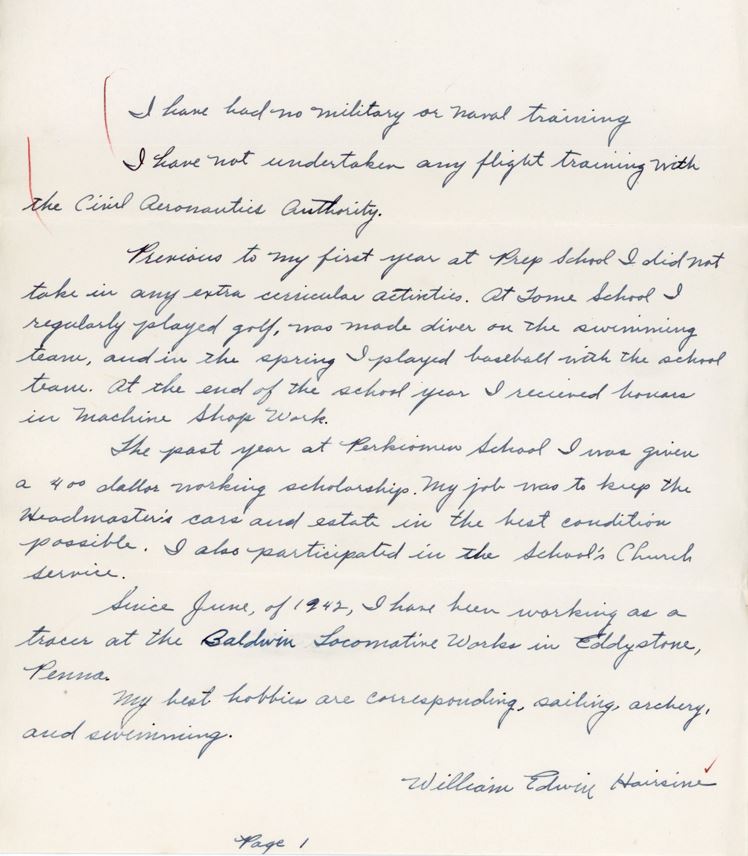 I have had no military or naval training
I have not undertaken any flight training with
the Civil Aeronautics Authority.
Previous to my first year at Prep School I did not
take in any extra cericular activities. At Tome School I
regularly played golf, was made diver on the swimming
team, and in the spring I played baseball with the school
team. At the end of the school year I recieved honors
in Machine Shop Work.
The past year at Perkiomen School I was given
a 400 dollar working scholarship. My job was to keep the
Headmaster's cars and estate in the best condition
possible. I also participated in the School's Church
service.
Since June, of 1942, I have been working as a
tracer at the Baldwin Locomotive Works in Eddystone,
Penna.
My best hobbies are corresponding, sailing, archery,
and swimming.
William Edwin Hairsine
Page 1